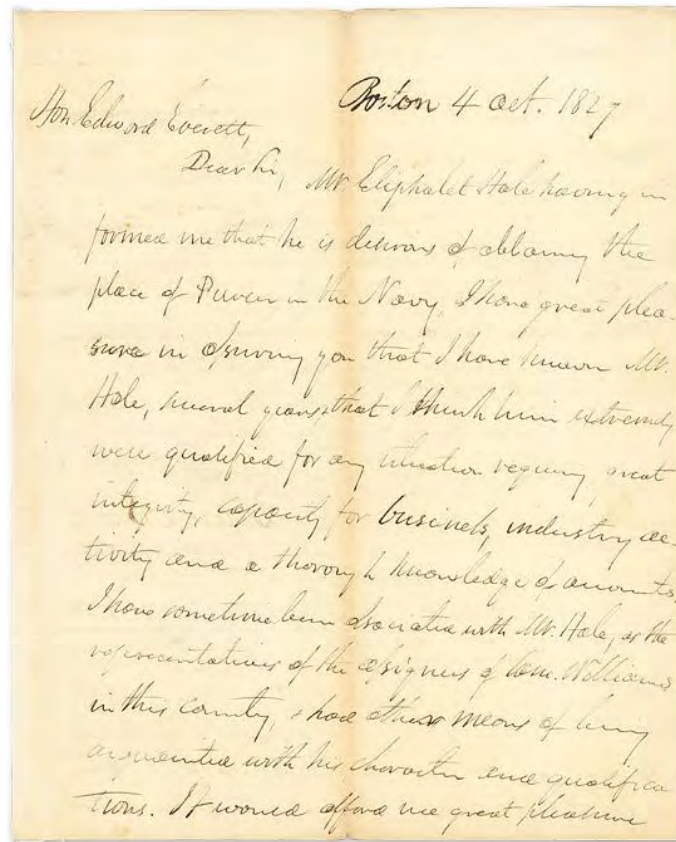 Boston 4 Oct. 1827
Hon Edward Everett,
Dear Sir, Mr. Eliphalet Hale having in
formed me that he is desirous of obtaining the
place of Purser in the Navy, I have great plea-
sure in assuring you that I have known Mr.
Hale, several years, that I think him extremely
well qualified for any situation requiring great
integrity, capacity for business, industry ac-
tivity and a thorough knowledge of accounts.
I have sometime been associated with Mr. Hale, as the
representatives of the assignees of Williams
in this Country, & had other means of being
acquainted with his character and qualifica
tions. It would afford me great pleasure